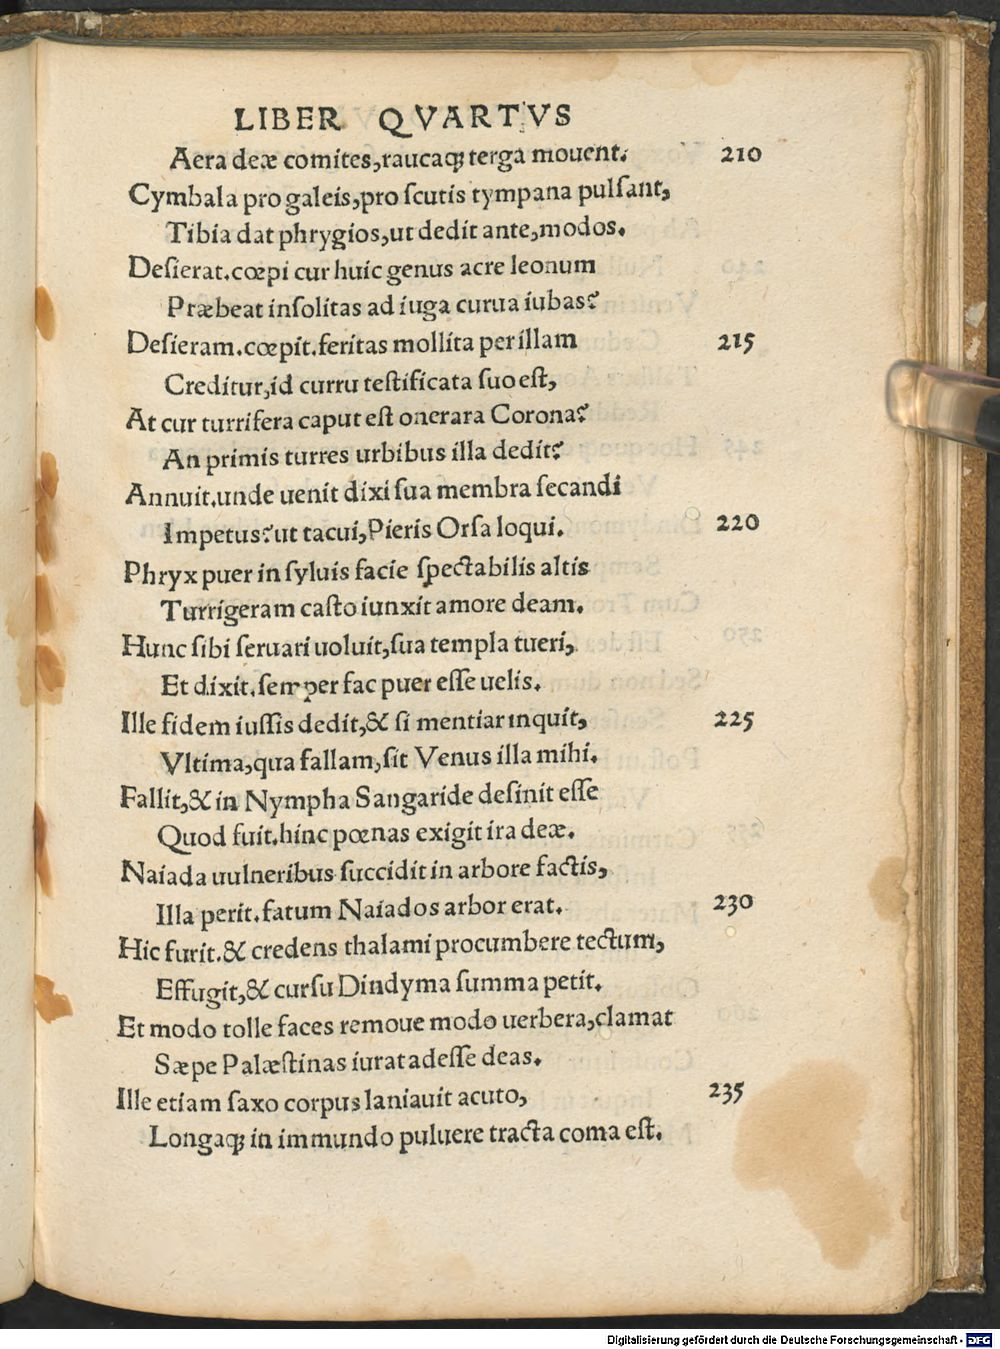 LIBER QVARTVS
Aera deæ comites,raucaqꝫ terga mouent. 210
Cymbala pro galeis,pro ſcutis tympana pulſant,
Tibia dat phrygios,ut dedit ante,modos.
Deſierat.cœpi cur huic genus acre leonum
Præbeat inſolitas ad iuga curua iubas?
Deſieram.cœpit.feritas mollita per illam 215
Creditur,id curru teſtificata ſuo eſt,
At cur turrifera caput eſt onerara Corona?
An primis turres urbibus illa dedit?
Annuit.unde uenit dixi ſua membra ſecandi
Impetus?ut tacui,Pieris Orſa loqui. 220
Phryx puer in ſyluis facie ſpectabilis altis
Turrigeram caſto iunxit amore deam.
Hunc ſibi ſeruari uoluit,ſua templa tueri,
Et dixit.ſemper fac puer eſſe uelis.
Ille fidem iuſſis dedit,& ſi mentiar inquit, 225
Vltima,qua fallam,ſit Venus illa mihi.
Fallit,& in Nympha Sangaride deſinit eſſe
Quod fuit.hinc pœnas exigit ira deæ.
Naiada uulneribus ſuccidit in arbore factis,
Illa perit.fatum Naiados arbor erat. 230
Hic furit.& credens thalami procumbere tectum,
Effugit,& curſu Dindyma ſumma petit.
Et modo tolle faces remoue modo uerbera,clamat
Sæpe Palæſtinas iurat adeſſe deas.
Ille etiam ſaxo corpus laniauit acuto, 235
Longaqꝫ in immundo puluere tracta coma eſt.
Digitalisierung gefördert durch die Deutsche Forschungsgemeinschaft - DFG